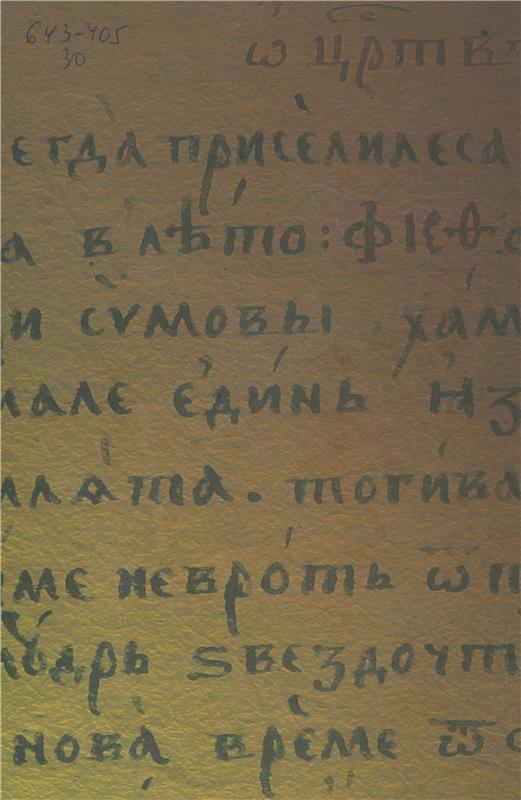 643-405
30
ѿ црⷭ҇тв
егда̀ присѐлилеса
а в̾ лѣ́то : ФКѲ
и сѵмовы ха́м
мале еди́нь из
ллѧта . тоги́ва
ме невро́ть ѿ п
ѹдрь ѕвездочт
нова̀ врѐме ѿ с